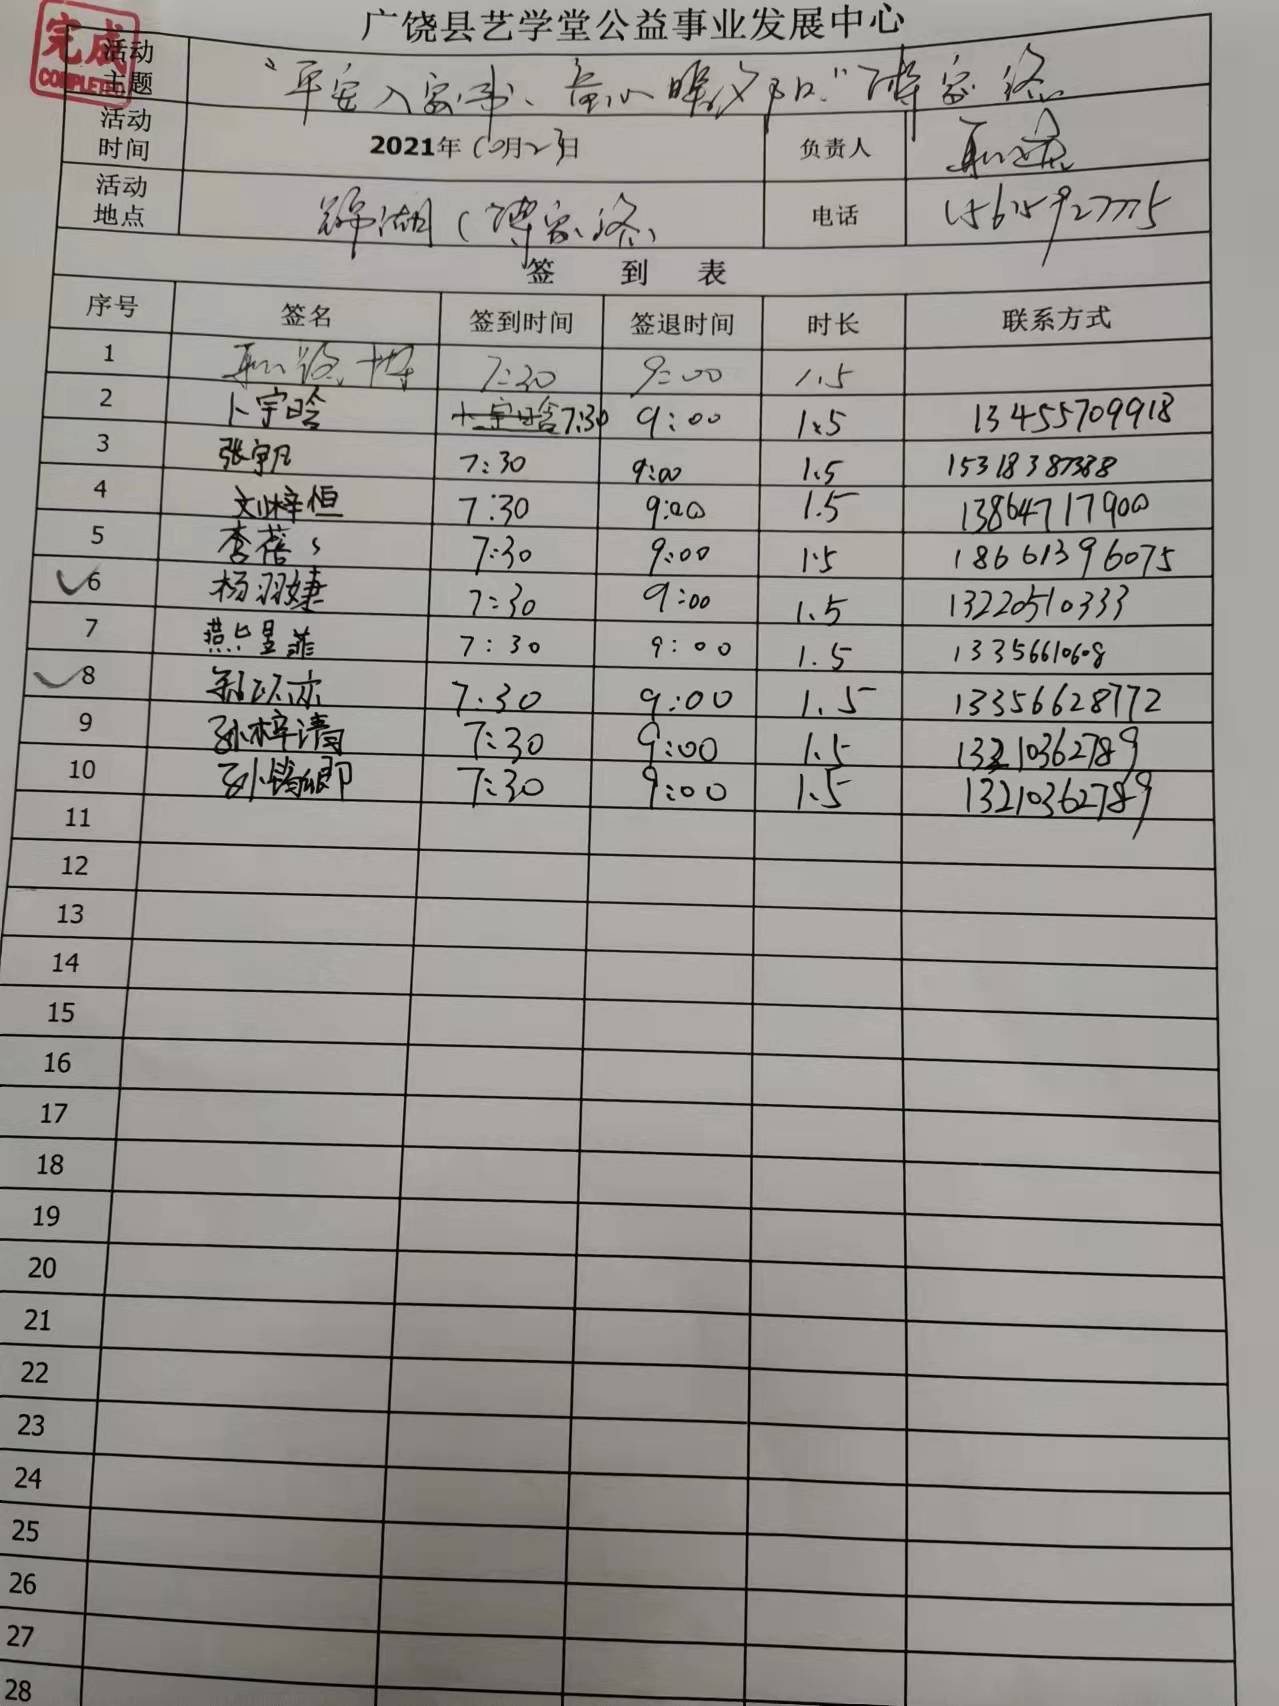 广饶县艺学堂公益事业发展中心
完成
COMPLETED
活动主题
活动时间 2021年10月23日 负责人
活动地点 锦湖 电话
签 到 表
序号 签名 签到时间 签退时间 时长 联系方式
1 7:30 9:00 1.5
2 卜宇晗 7:30 9:00 1.5 13455709918
3 张宇凡 7:30 9:00 1.5 15318387388
4 刘梓恒 7:30 9:00 1.5 13864717900
5 李蓓 7:30 9:00 1.5 18661396075
6 杨羽婕 7:30 9:00 1.5 13220510333
7 7:30 9:00 1.5 13356610608
8 7:30 9:00 1.5 13356628772
9 孙梓清 7:30 9:00 1.5 13210362789
10 7:30 9:00 1.5 13210362789
11
12
13
14
15
16
17
18
19
20
21
22
23
24
25
26
27
28